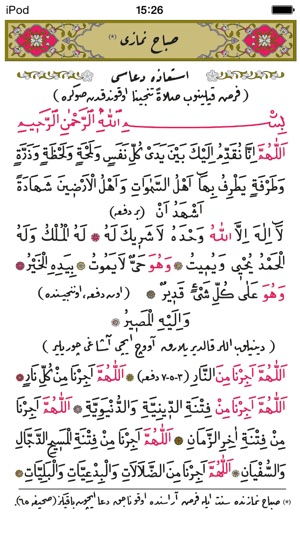 iPod 15:26
صباح نمازی (*)
استعاذه دعاسی
بِسْمِ اللّٰهِ الرَّحْمٰنِ الرَّحِيمِ
اَللّٰهُمَّ اِنَّا نُقَدِّمُ اِلَيْكَ بَيْنَ يَدَىْ كُلِّ نَفَسٍ وَلَمْحَةٍ وَلَحْظَةٍ وَذَرَّةٍ
وَطَرْفَةٍ يَطْرِفُ بِهَا اَهْلُ السَّمٰوَاتِ وَاَهْلُ الْاَرَضٖينَ شَهَادَةً
اَشْهَدُ اَنْ (بر دفعه)
لَا اِلٰهَ اِلَّا اللّٰهُ وَحْدَهُ لَا شَرٖيكَ لَهُ ۞ لَهُ الْمُلْكُ وَلَهُ
الْحَمْدُ يُحْيٖى وَيُمٖيتُ ۞ وَهُوَ حَىٌّ لَا يَمُوتُ ۞ بِيَدِهِ الْخَيْرُ ۞
وَهُوَ عَلٰى كُلِّ شَىْءٍ قَدٖيرٌ ۞ (اون دفعه، اوننجیسنده)
وَاِلَيْهِ الْمَصٖيرُ ۞
اَللّٰهُمَّ اَجِرْنَا مِنَ النَّارِ (٣-٥-٧ دفعه) ۞ اَللّٰهُمَّ اَجِرْنَا مِنْ كُلِّ نَارٍ ۞
اَللّٰهُمَّ اَجِرْنَا مِنْ فِتْنَةِ الدّٖينِيَّةِ وَالدُّنْيَوِيَّةِ ۞ اَللّٰهُمَّ اَجِرْنَا
مِنْ فِتْنَةِ اٰخِرِ الزَّمَانِ ۞ اَللّٰهُمَّ اَجِرْنَا مِنْ فِتْنَةِ الْمَسٖيحِ الدَّجَّالِ
وَالسُّفْيَانِ ۞ اَللّٰهُمَّ اَجِرْنَا مِنَ الضَّلَالَاتِ وَالْبِدْعِيَّاتِ وَالْبَلِيَّاتِ ۞
(*) صباح نمازنده سنت ایله فرض آراسنده اوقوناجق دعا ایچون باقیڭز (صحیفه ٦٥).